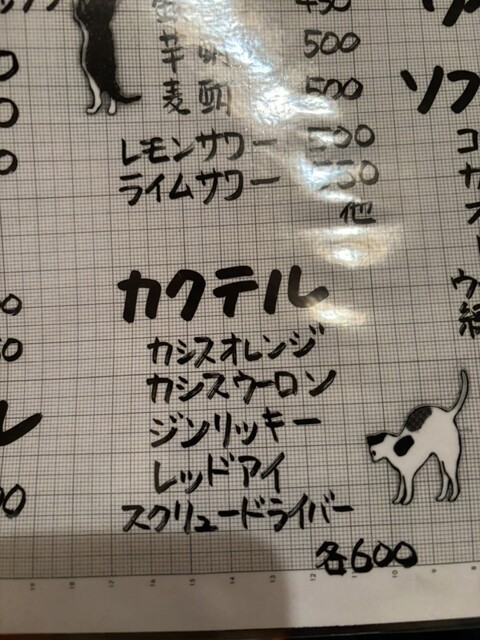 450
芋 500
麦 500
レモンサワー 500
ライムサワー 550
他
カクテル
カシスオレンジ
カシスウーロン
ジンリッキー
レッドアイ
スクリュードライバー
各600
ソフ